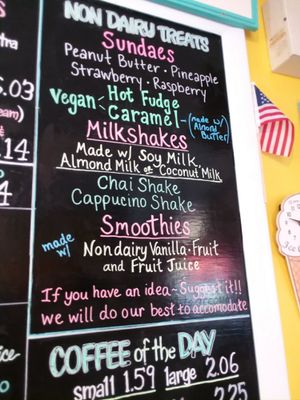 NON DAIRY TREATS
Sundaes
Peanut Butter • Pineapple
Strawberry • Raspberry
Vegan Hot Fudge
Caramel - (made w/ Almond Butter)
Milkshakes
Made w/ Soy Milk,
Almond Milk or Coconut Milk
Chai Shake
Cappucino Shake
Smoothies
made w/ Nondairy Vanilla - Fruit
and Fruit Juice
If you have an idea ~ Suggest it!!
we will do our best to accomodate
COFFEE of the DAY
small 1.59 large 2.06
2.25